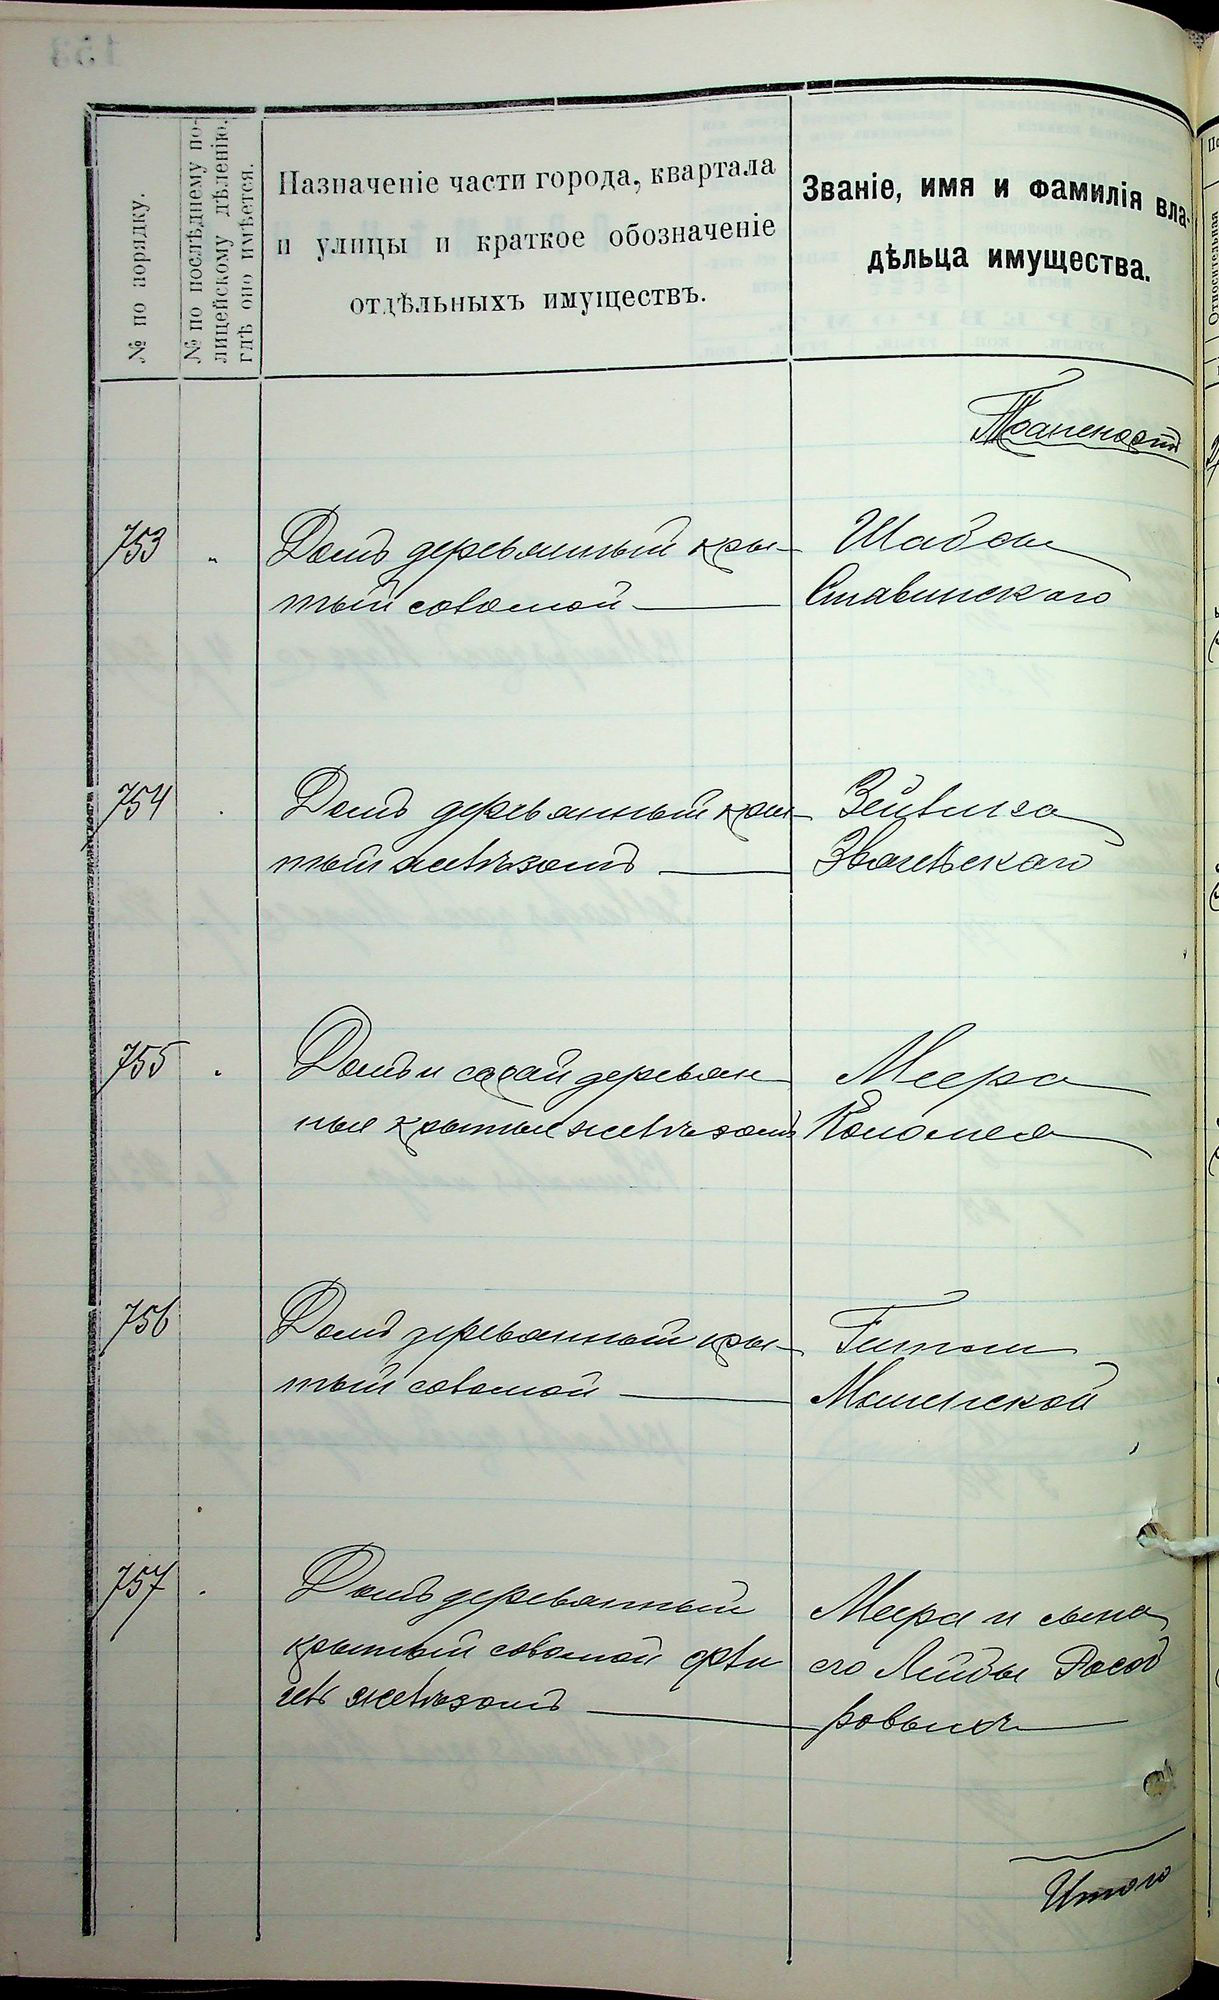 № по порядку.
№ по послѣднему по-
лицейскому дѣленію,
гдѣ оно имѣется.
Назначеніе части города, квартала
и улицы и краткое обозначеніе
отдѣльныхъ имуществъ.
Званіе, имя и фамилія вла-
дѣльца имущества.
753 „ Домъ деревянный кры-
тый соломой
Ставинскаго
754 Домъ деревянный кры-
тый желѣзомъ
755 Домъ и сарай деревян-
ные крытые желѣзомъ
Меера
Коломея
756 Домъ деревянный кры-
тый соломой
Гитли
757 Домъ деревянный
крытый соломой флі
гель желѣзомъ
Меера и сына
его Лейбы
Итого